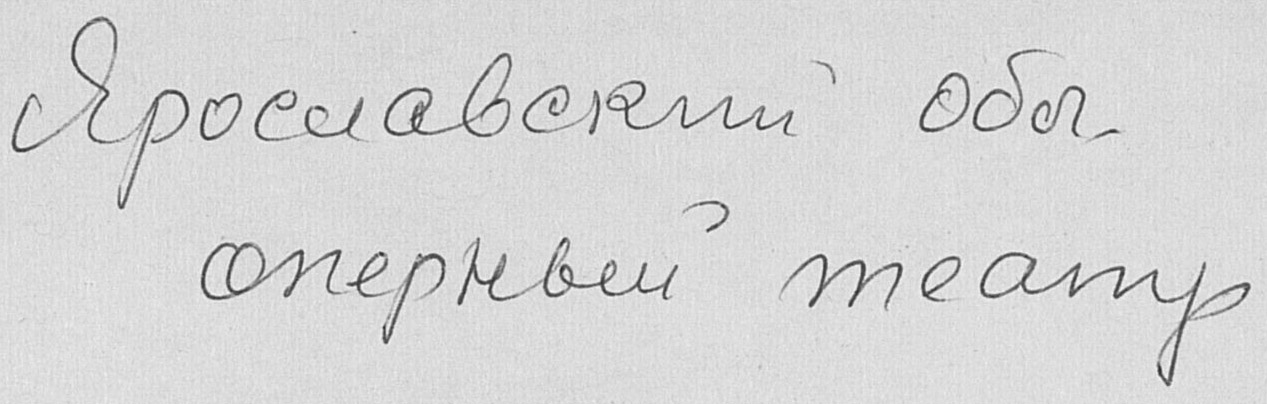 Ярославский обл.
оперный театр